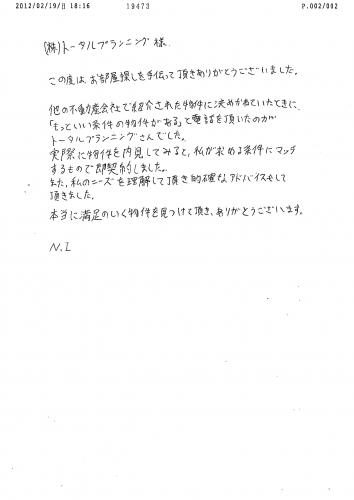 2012/02/19/日 18:16 19473 P.002/002
(株)トータルプランニング様
この度は、お部屋探しを手伝って頂きありがとうございました。
他の不動産会社で紹介された物件に決めかねていたときに、
「もっといい条件の物件がある」と電話を頂いたのが
トータルプランニングさんでした。
実際に物件を内見してみると、私が求める条件にマッチ
するもので即契約しました。
また、私のニーズを理解して頂き的確なアドバイスもして
頂きました。
本当に満足のいく物件を見つけて頂き、ありがとうございます。
N.I